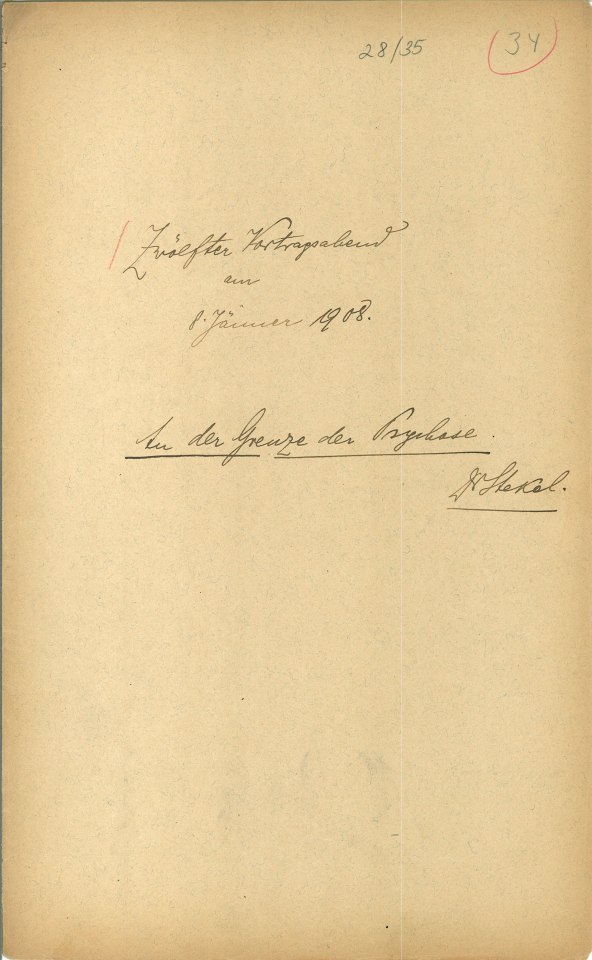 28/35
34
Zwölfter Vortragsabend
am
8. Jänner 1908.
An der Grenze der Psychose.
Dr Stekel.